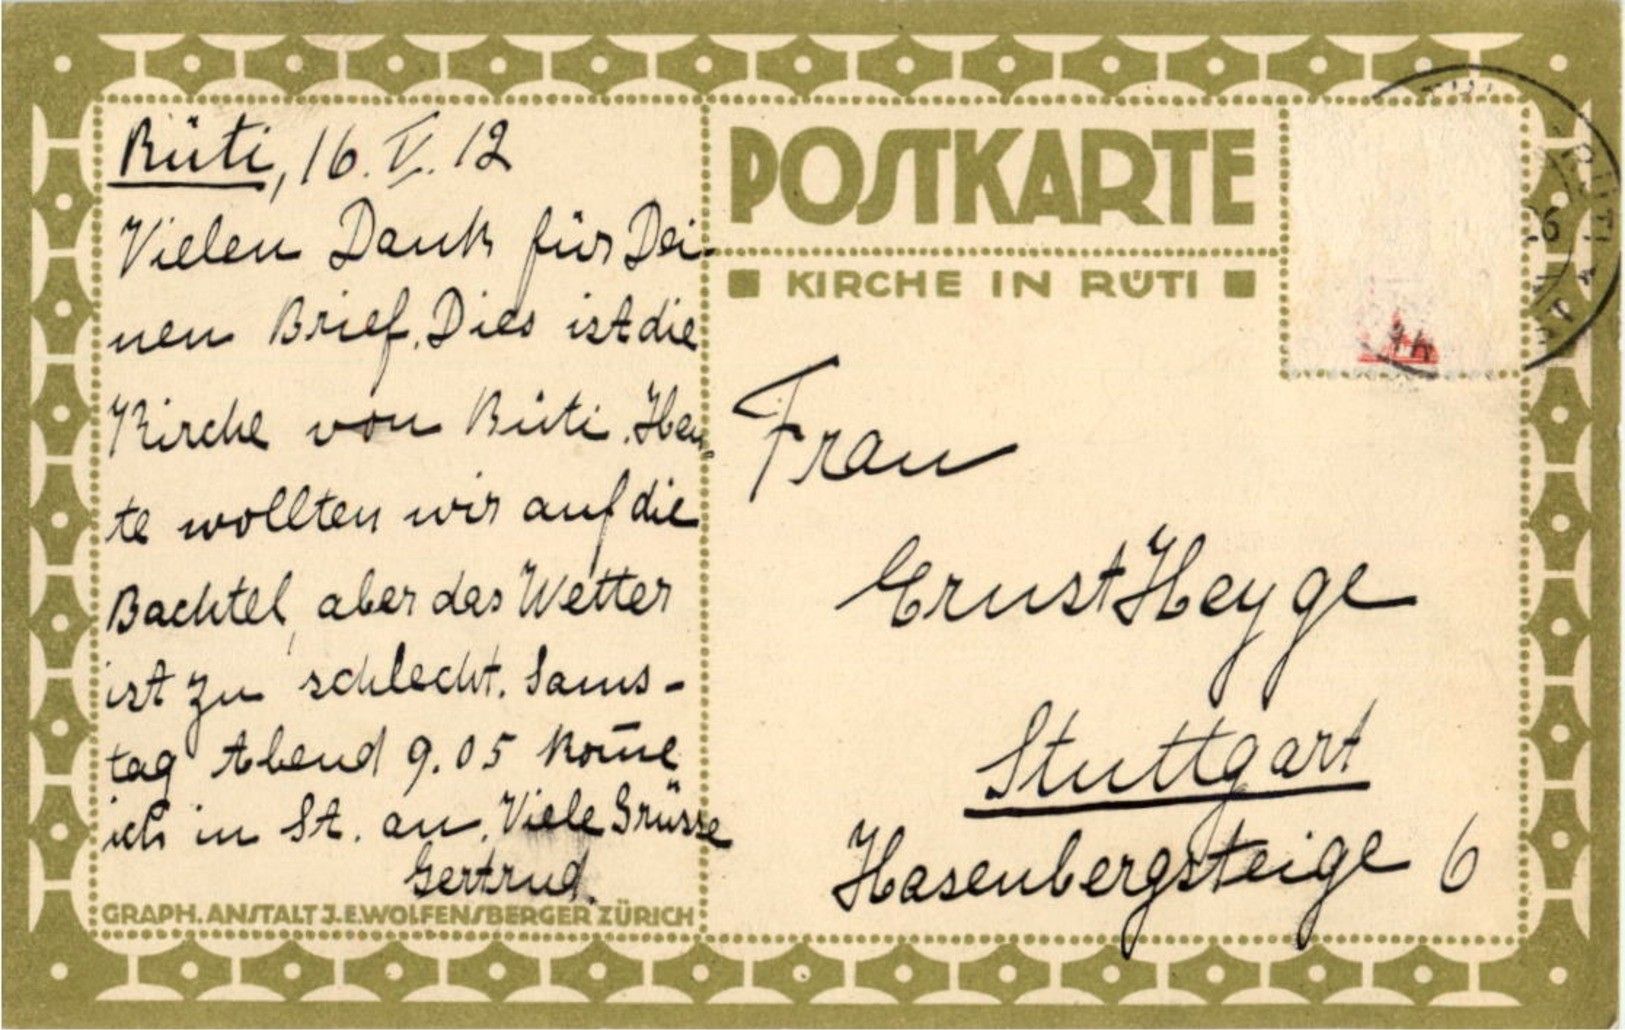 Rüti, 16. V. 12
Vielen Dank für Dei-
nen Brief. Dies ist die
Kirche von Rüti. Heu-
te wollten wir auf die
Bachtel, aber das Wetter
ist zu schlecht. Sams-
tag Abend 9.05 kom̄e
ich in St. an. Viele Grüsse
Gertrud.
GRAPH. ANSTALT J. E. WOLFENSBERGER ZÜRICH
POSTKARTE
KIRCHE IN RÜTI
Frau
Ernst Heyge
Stuttgart
Hasenbergsteige 6
RÜTI